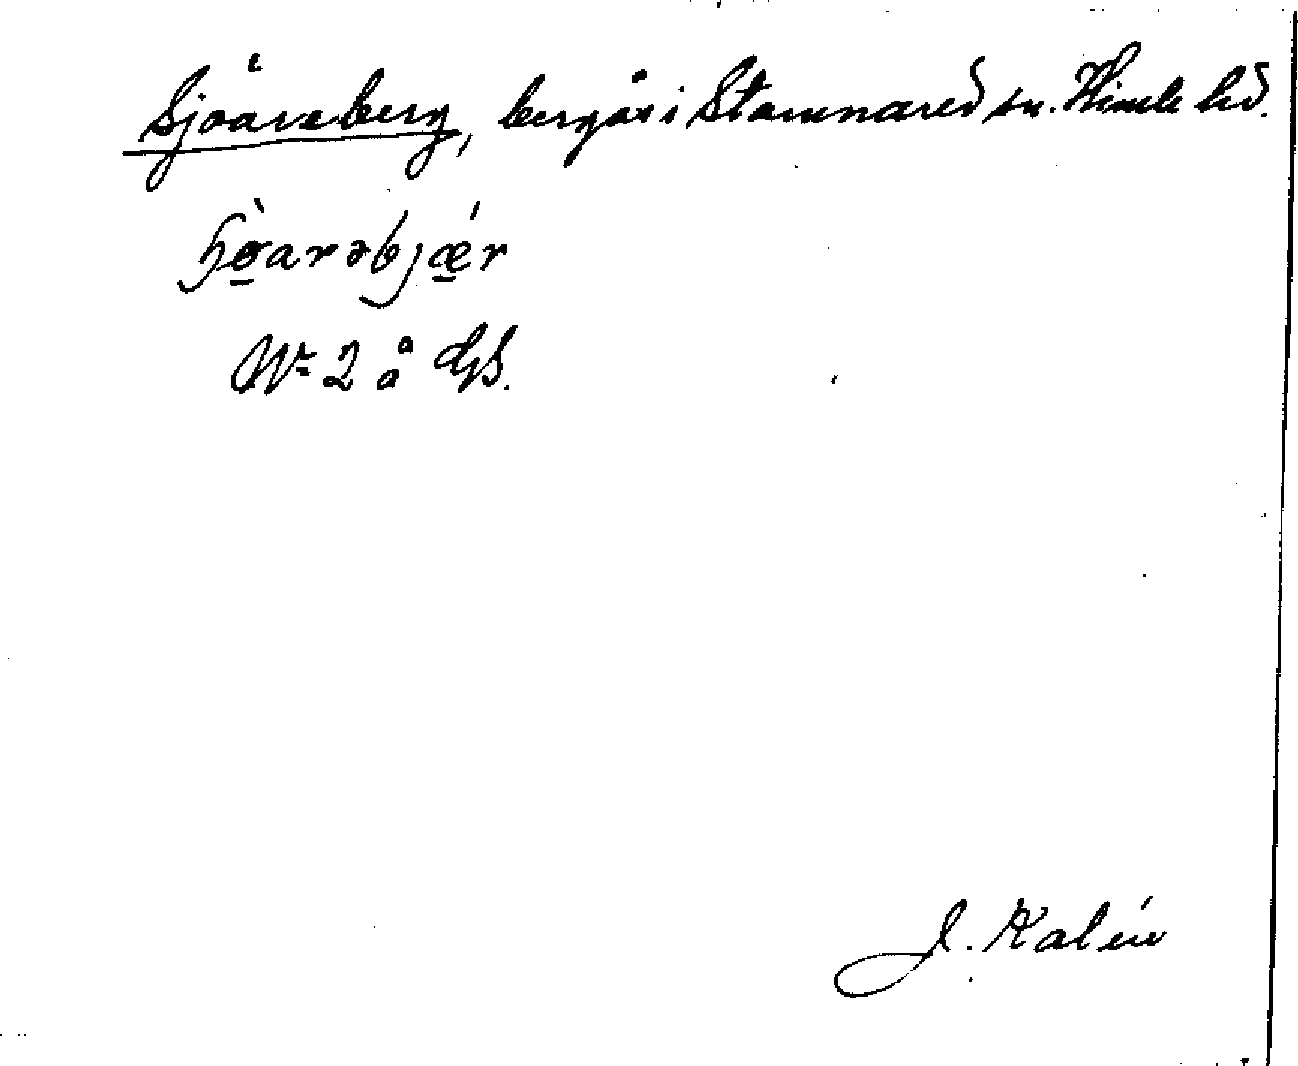 Sjöareberg, bergås i Stamnared sn. Himle hd.
ɧö̀arəbjǽr
Nr 2 å GS.
J. Kalén